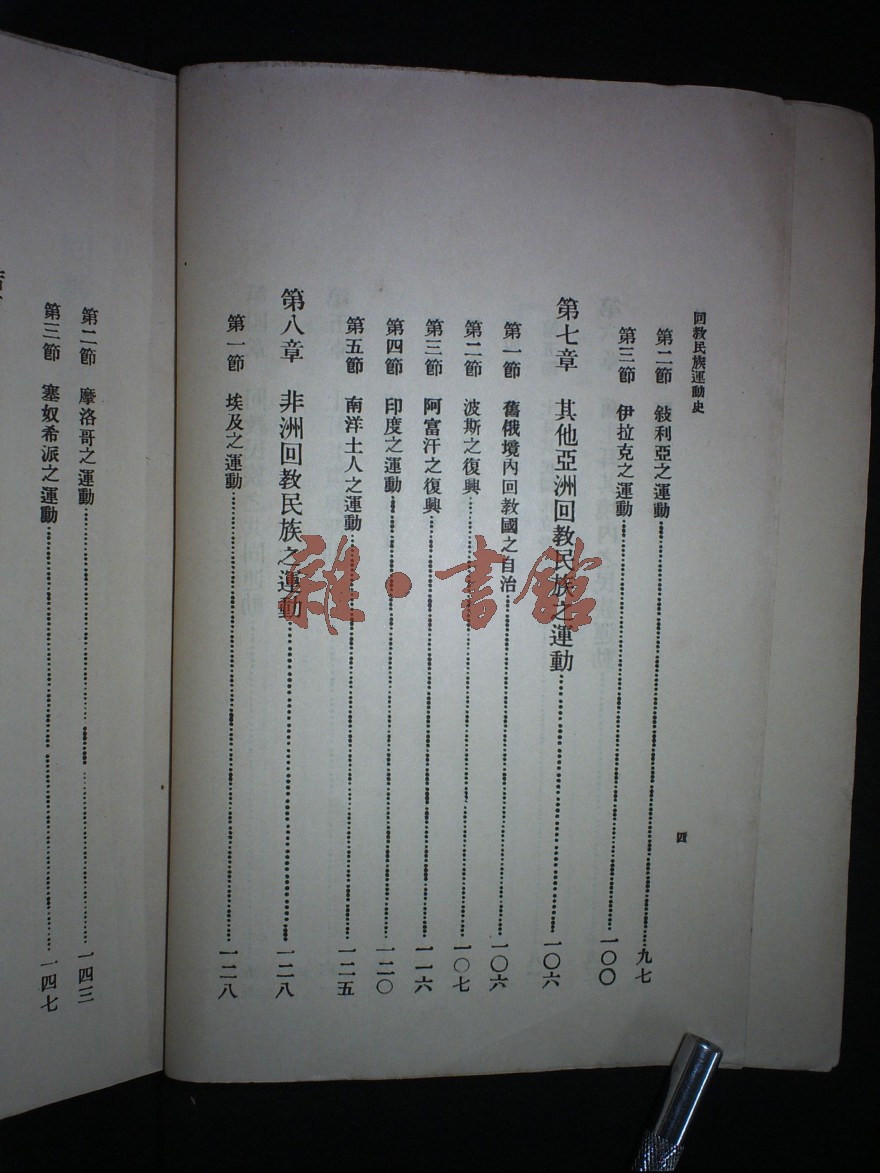 回教民族運動史
四
第二節 敍利亞之運動 九七
第三節 伊拉克之運動 一〇〇
第七章 其他亞洲回教民族之運動 一〇六
第一節 舊俄境內回教國之自治 一〇六
第二節 波斯之復興 一〇七
第三節 阿富汗之復興 一一六
第四節 印度之運動 一二〇
第五節 南洋土人之運動 一二五
第八章 非洲回教民族之運動 一二八
第一節 埃及之運動 一二八
第二節 摩洛哥之運動 一四三
第三節 塞奴希派之運動 一四七
雅·書館